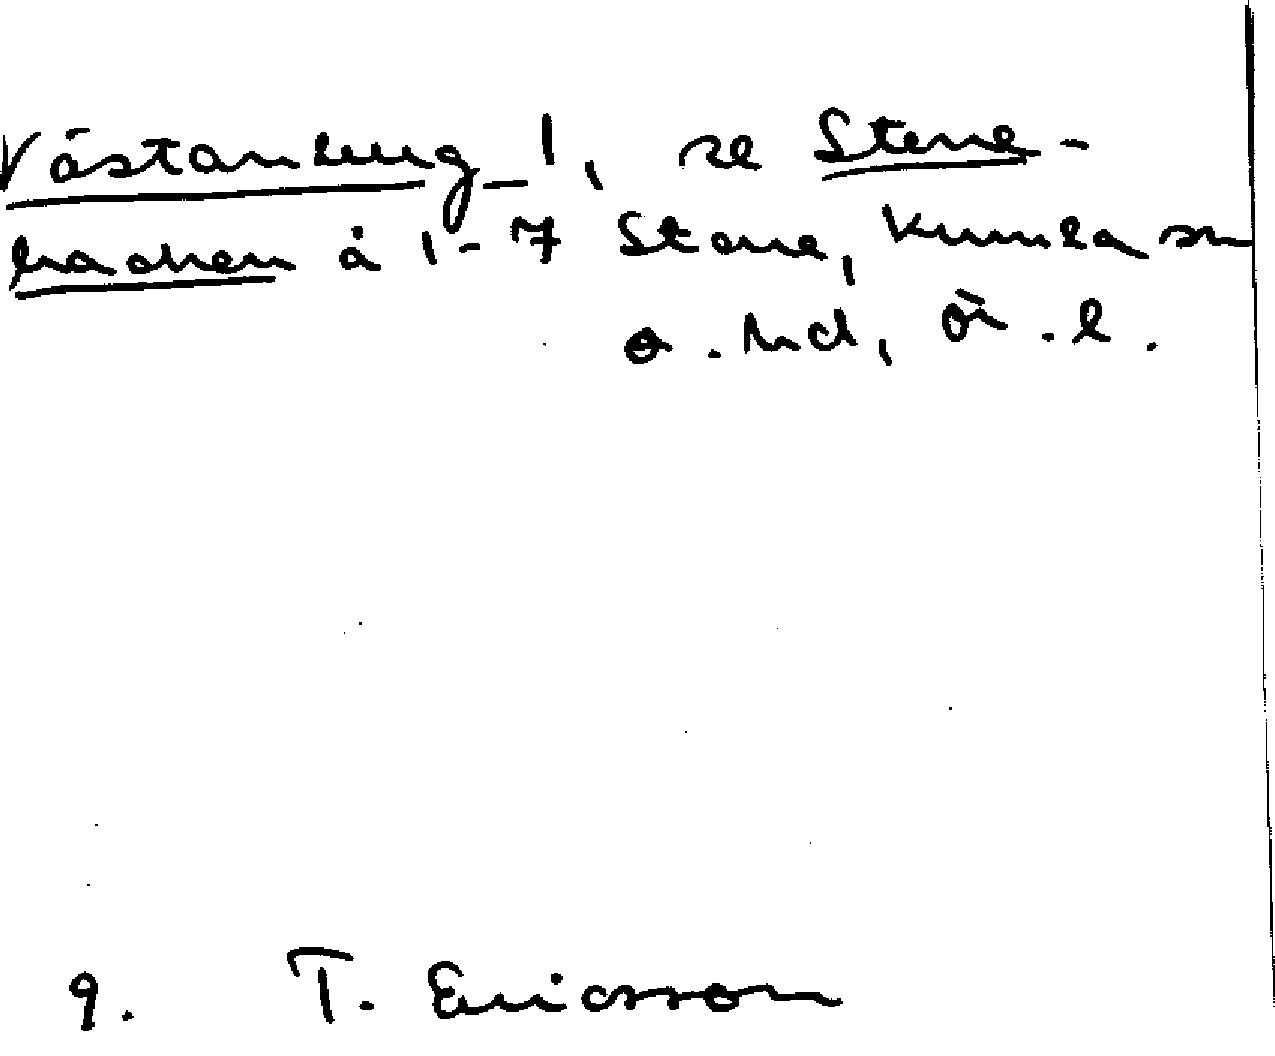 Västanberg 1, se Stene-
backen å 1-7 Stene, Kumla sn
o. hd, Ör. l.
9. T. Ericsson